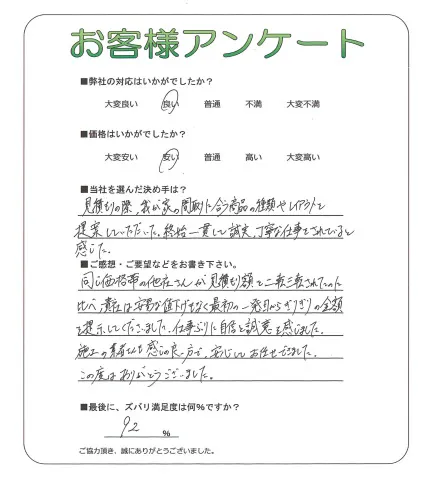 お客様アンケート
■弊社の対応はいかがでしたか?
大変良い 良い 普通 不満 大変不満
■価格はいかがでしたか?
大変安い 安い 普通 高い 大変高い
■当社を選んだ決め手は?
見積もりの際、我が家の間取りに合う商品の種類やレイアウトを
提案していただいた。終始一貫して誠実、丁寧な仕事をされていると
感じた。
■ご感想・ご要望などをお書き下さい。
同じ価格帯の他社さんが見積もり額を二転三転されたのに
比べ、貴社は安易な値下げもなく最初の一発目からぎりぎりの金額
を提示してくださいました。仕事ぶりに自信と誠意を感じました。
施工の業者さんも感じの良い方で、安心してお任せできました。
この度はありがとうございました。
■最後に、ズバリ満足度は何%ですか?
92 %
ご協力頂き、誠にありがとうございました。